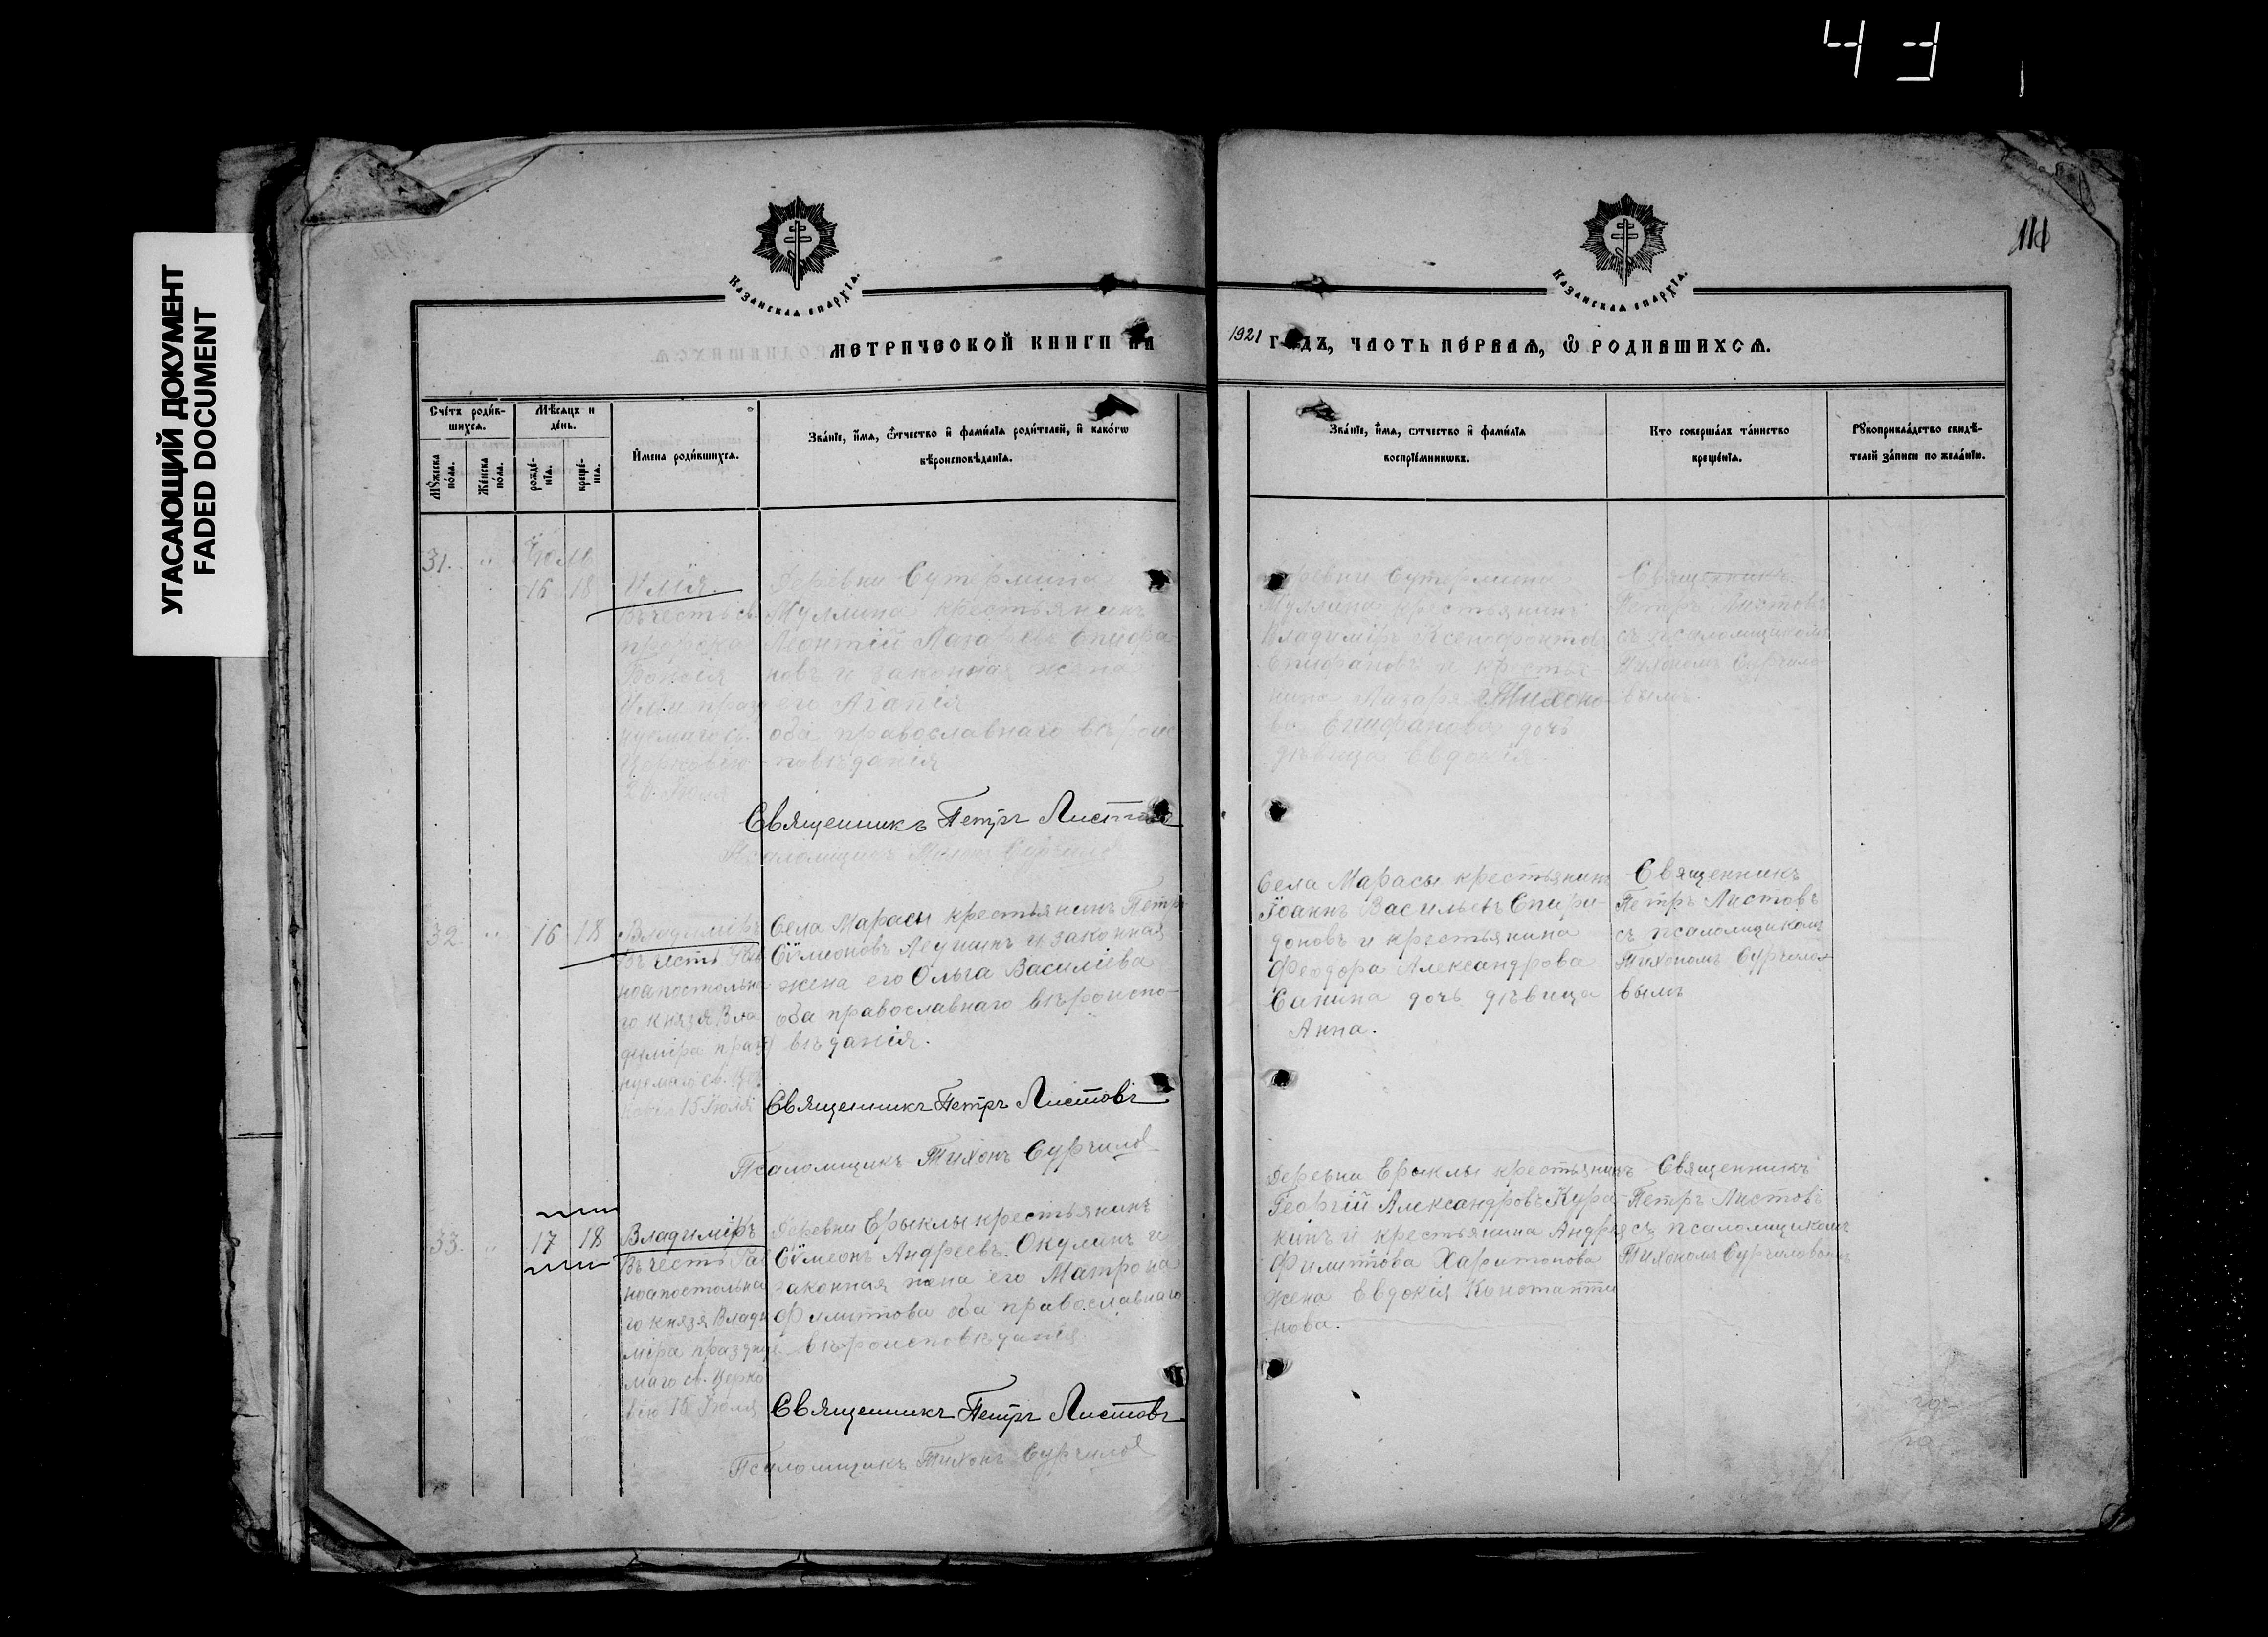 43
УГАСАЮЩИЙ ДОКУМЕНТ
FADED DOCUMENT
111
Казанская епархїа.
Казанская епархїа.
МЕТРИЧЕСКОЙ КНИГИ НА 1921 ГОДЪ, ЧАСТЬ ПЕРВАЯ, Ѽ РОДИВШИХСЯ.
Счетъ родив-
шихся.
Мѣсяцъ и
день.
Мꙋжеска
пола.
Женска
пола.
рожде-
нїя.
креще-
нїя.
Имена родившихся.
Званїе, имя, ѻтчество и фамилїя родителей, и какогѡ
вѣроисповѣданїя.
Званїе, имя, ѻтчество и фамилїя
воспрїемникѡвъ.
Кто совершалъ таинство
крещенїя.
Рꙋкоприкладство свидѣ-
телей записи по желанїю.
31. " Іюль
16 18 Илія.
Въ честь св.
пророка
Божія
Ильи празд
нуемаго св.
Церковью
20 Іюля
Деревни Сутермина
Муллина крестьянинъ
Леонтій Лазаревъ Епифа
новъ и законная жена
его Агапія
оба православнаго вѣроис
-повѣданія
Священникъ Петръ Листовъ
Псаломщикъ Тихонъ Сурчилов
Деревни Сутермина
Муллина крестьянинъ
Владиміръ Ксенофонтов
Епифановъ и крестья
нина Лазаря Тихоно
ва Епифанова дочь
дѣвица Евдокія.
Священникъ
Петръ Листовъ
съ псаломщикомъ
Тихономъ Сурчило
вымъ.
32. " 16 18 Владиміръ
Въ честь Рав
ноапостольна
го князя Вла
диміра празд
нуемаго св. Цер
ковью 15 Іюля
Села Марасы крестьянинъ Петръ
Сѵмеоновъ Ледушинъ и законная
жена его Ольга Василіева
оба православнаго вѣроиспо-
вѣданія.
Священникъ Петръ Листовъ
Псаломщикъ Тихонъ Сурчилов
Села Марасы крестьянинъ
Іоаннъ Васильевъ Спири-
доновъ и крестьянина
Ѳеодора Александрова
Санина дочь дѣвица
Анна.
Священникъ
Петръ Листовъ
съ псаломщикомъ
Тихономъ Сурчило-
вымъ
33. " 17 18 Владиміръ
Въ честь Рав
ноапостольна
го князя Влади
міра празднуе
маго св. Церко
вію 15 Іюля
Деревни Ерыклы крестьянинъ
Сѵмеонъ Андреевъ Окулинъ и
законная жена его Матрона
Филиппова оба православнаго
вѣроисповѣданія
Священникъ Петръ Листовъ
Псаломщикъ Тихонъ Сурчилов
Деревни Ерыклы крестьянинъ
Георгій Александровъ Кура-
кинъ и крестьянина Андрея
Филиппова Харитонова
жена Евдокія Константи
нова.
Священникъ
Петръ Листовъ
съ псаломщикомъ
Тихономъ Сурчиловымъ